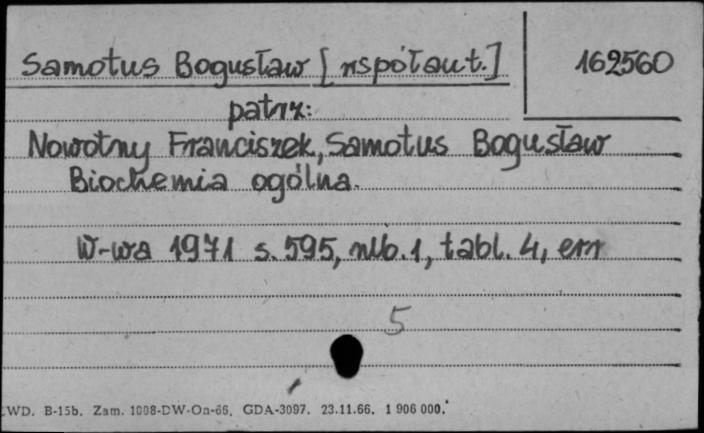 Samotus Bogusław [współaut.] 162560
patrz:
Nowotny Franciszek, Samotus Bogusław
Biochemia ogólna.
W-wa 1971 s. 595, nlb. 1, tabl. 4, err
5
WD. B-15b. Zam. 1008-DW-On-66. GDA-3097. 23.11.66. 1 906 000.